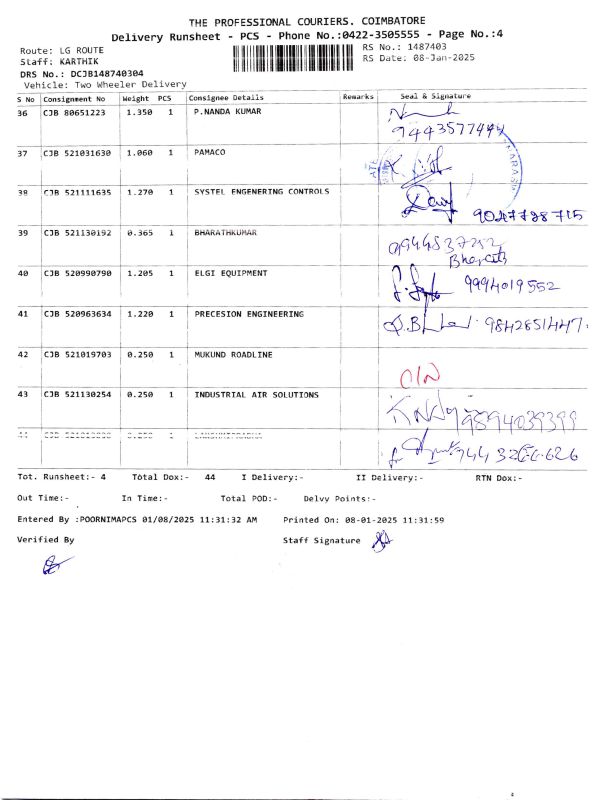 THE PROFESSIONAL COURIERS. COIMBATORE
Delivery Runsheet - PCS - Phone No.:0422-3505555 - Page No.:4
Route: LG ROUTE
RS No.: 1487403
Staff: KARTHIK
RS Date: 08-Jan-2025
DRS No.: DCJB148740304
Vehicle: Two Wheeler Delivery
S No Consignment No Weight PCS Consignee Details Remarks Seal & Signature
36 CJB 80651223 1.350 1 P.NANDA KUMAR
9443577444
37 CJB 521031630 1.060 1 PAMACO
38 CJB 521111635 1.270 1 SYSTEL ENGENERING CONTROLS
39 CJB 521130192 0.365 1 BHARATHKUMAR
40 CJB 520990790 1.205 1 ELGI EQUIPMENT 9994019552
41 CJB 520963634 1.220 1 PRECESION ENGINEERING 9842651447
42 CJB 521019703 0.250 1 MUKUND ROADLINE
43 CJB 521130254 0.250 1 INDUSTRIAL AIR SOLUTIONS 9894039399
44 CJB 1
Tot. Runsheet:- 4 Total Dox:- 44 I Delivery:- II Delivery:- RTN Dox:-
Out Time:- In Time:- Total POD:- Delvy Points:-
Entered By :POORNIMAPCS 01/08/2025 11:31:32 AM Printed On: 08-01-2025 11:31:59
Verified By Staff Signature